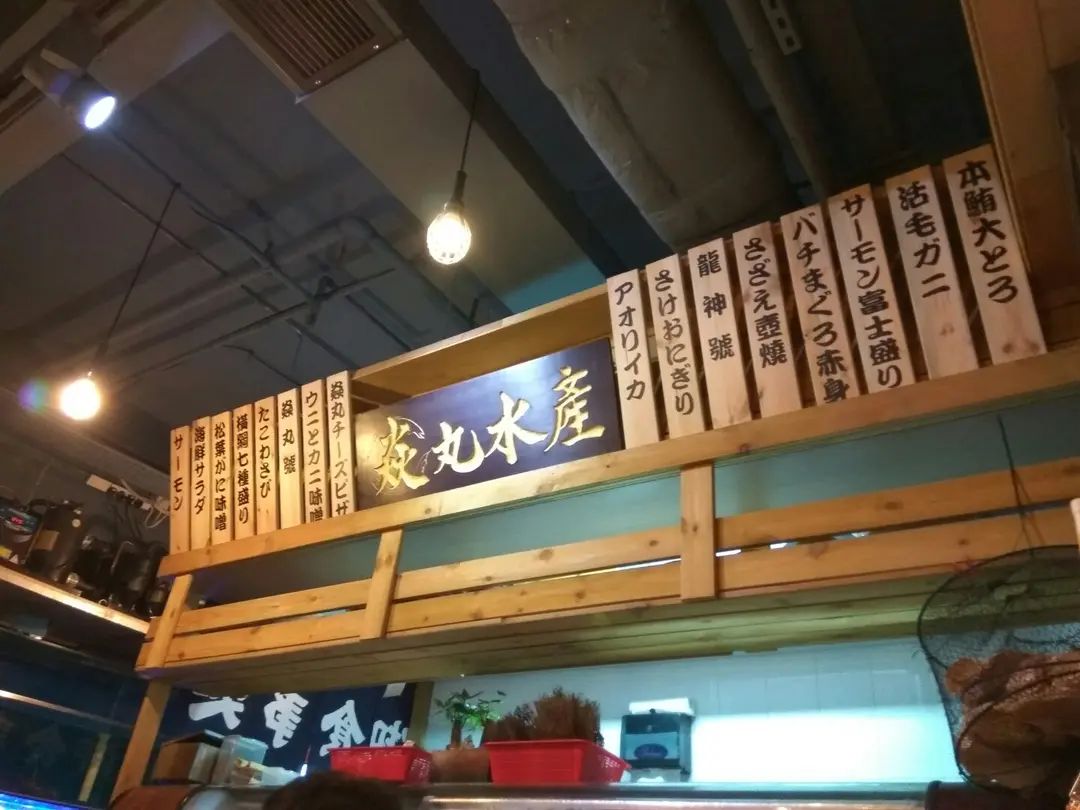 サーモン
海鮮サラダ
松葉がに味噌
横綱七種盛り
たこわさび
焱丸號
ウニとカニ味噌
焱丸チーズピザ
焱丸水產
アオリイカ
さけおにぎり
龍神號
さざえ壺燒
バチまぐろ赤身
サーモン富士盛り
活毛ガニ
本鮪大とろ